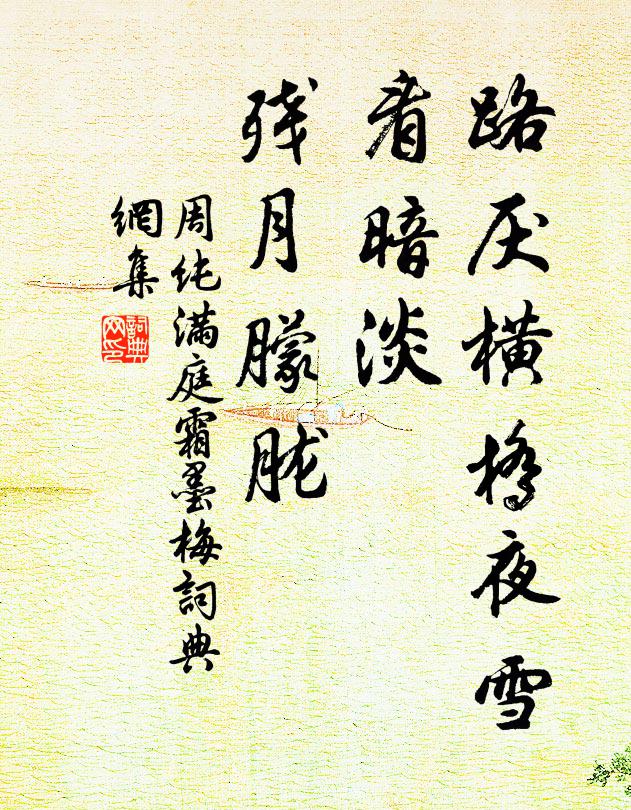 路厌横桥夜雪
看暗淡
残月朦胧
周纯满庭霜墨梅詞典
網集
詞典
网印